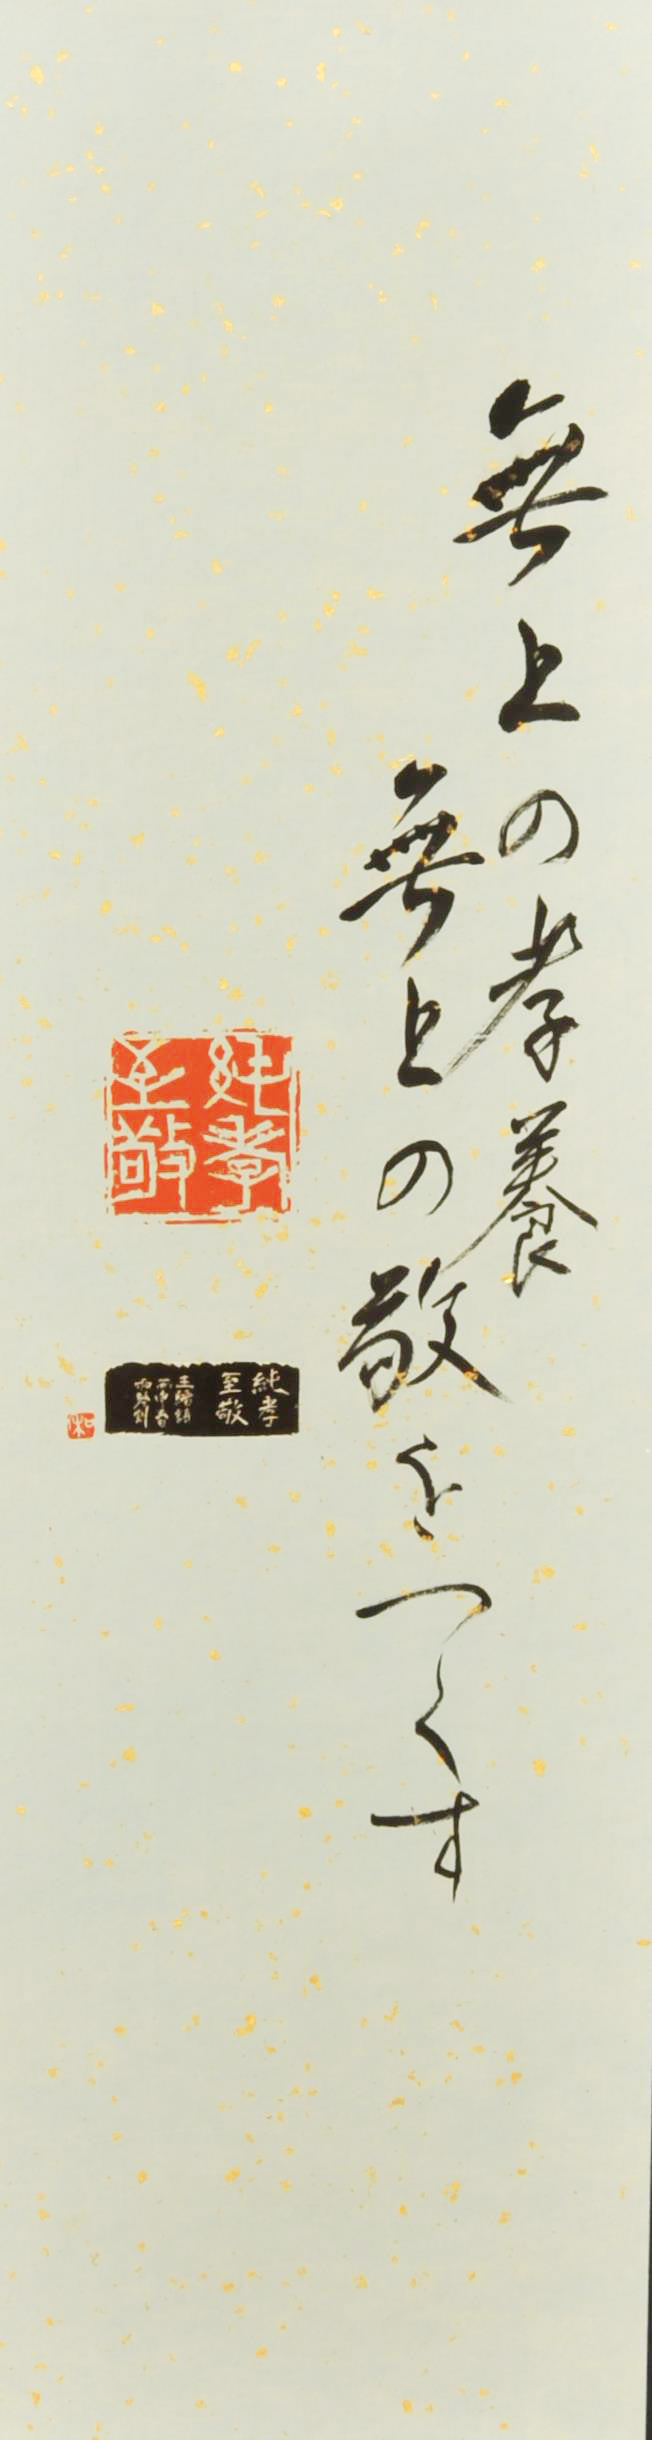 無上の孝養
無上の敬をつくす
純孝
至敬
純孝
至敬
丙申春
和